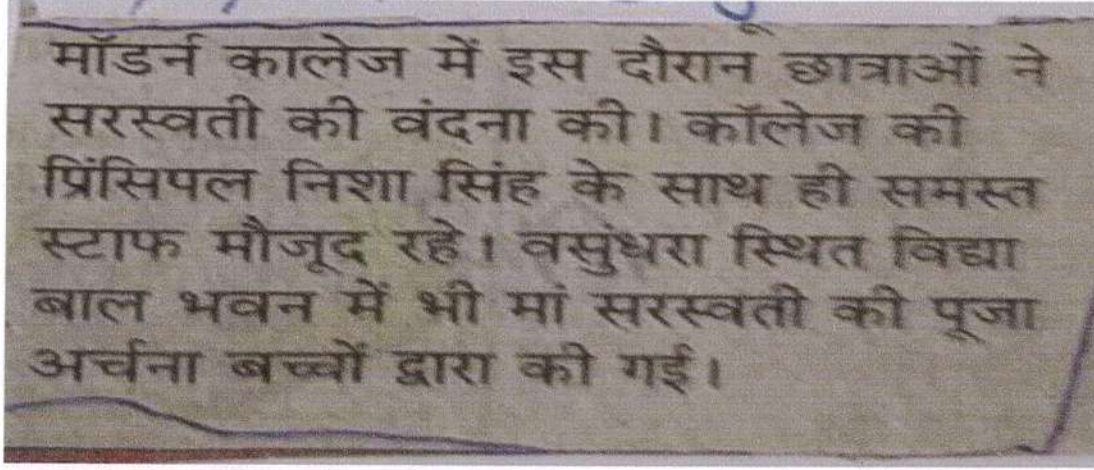 मॉडर्न कालेज में इस दौरान छात्राओं ने
सरस्वती की वंदना की। कॉलेज की
प्रिंसिपल निशा सिंह के साथ ही समस्त
स्टाफ मौजूद रहे। वसुंधरा स्थित विद्या
बाल भवन में भी मां सरस्वती की पूजा
अर्चना बच्चों द्वारा की गई।